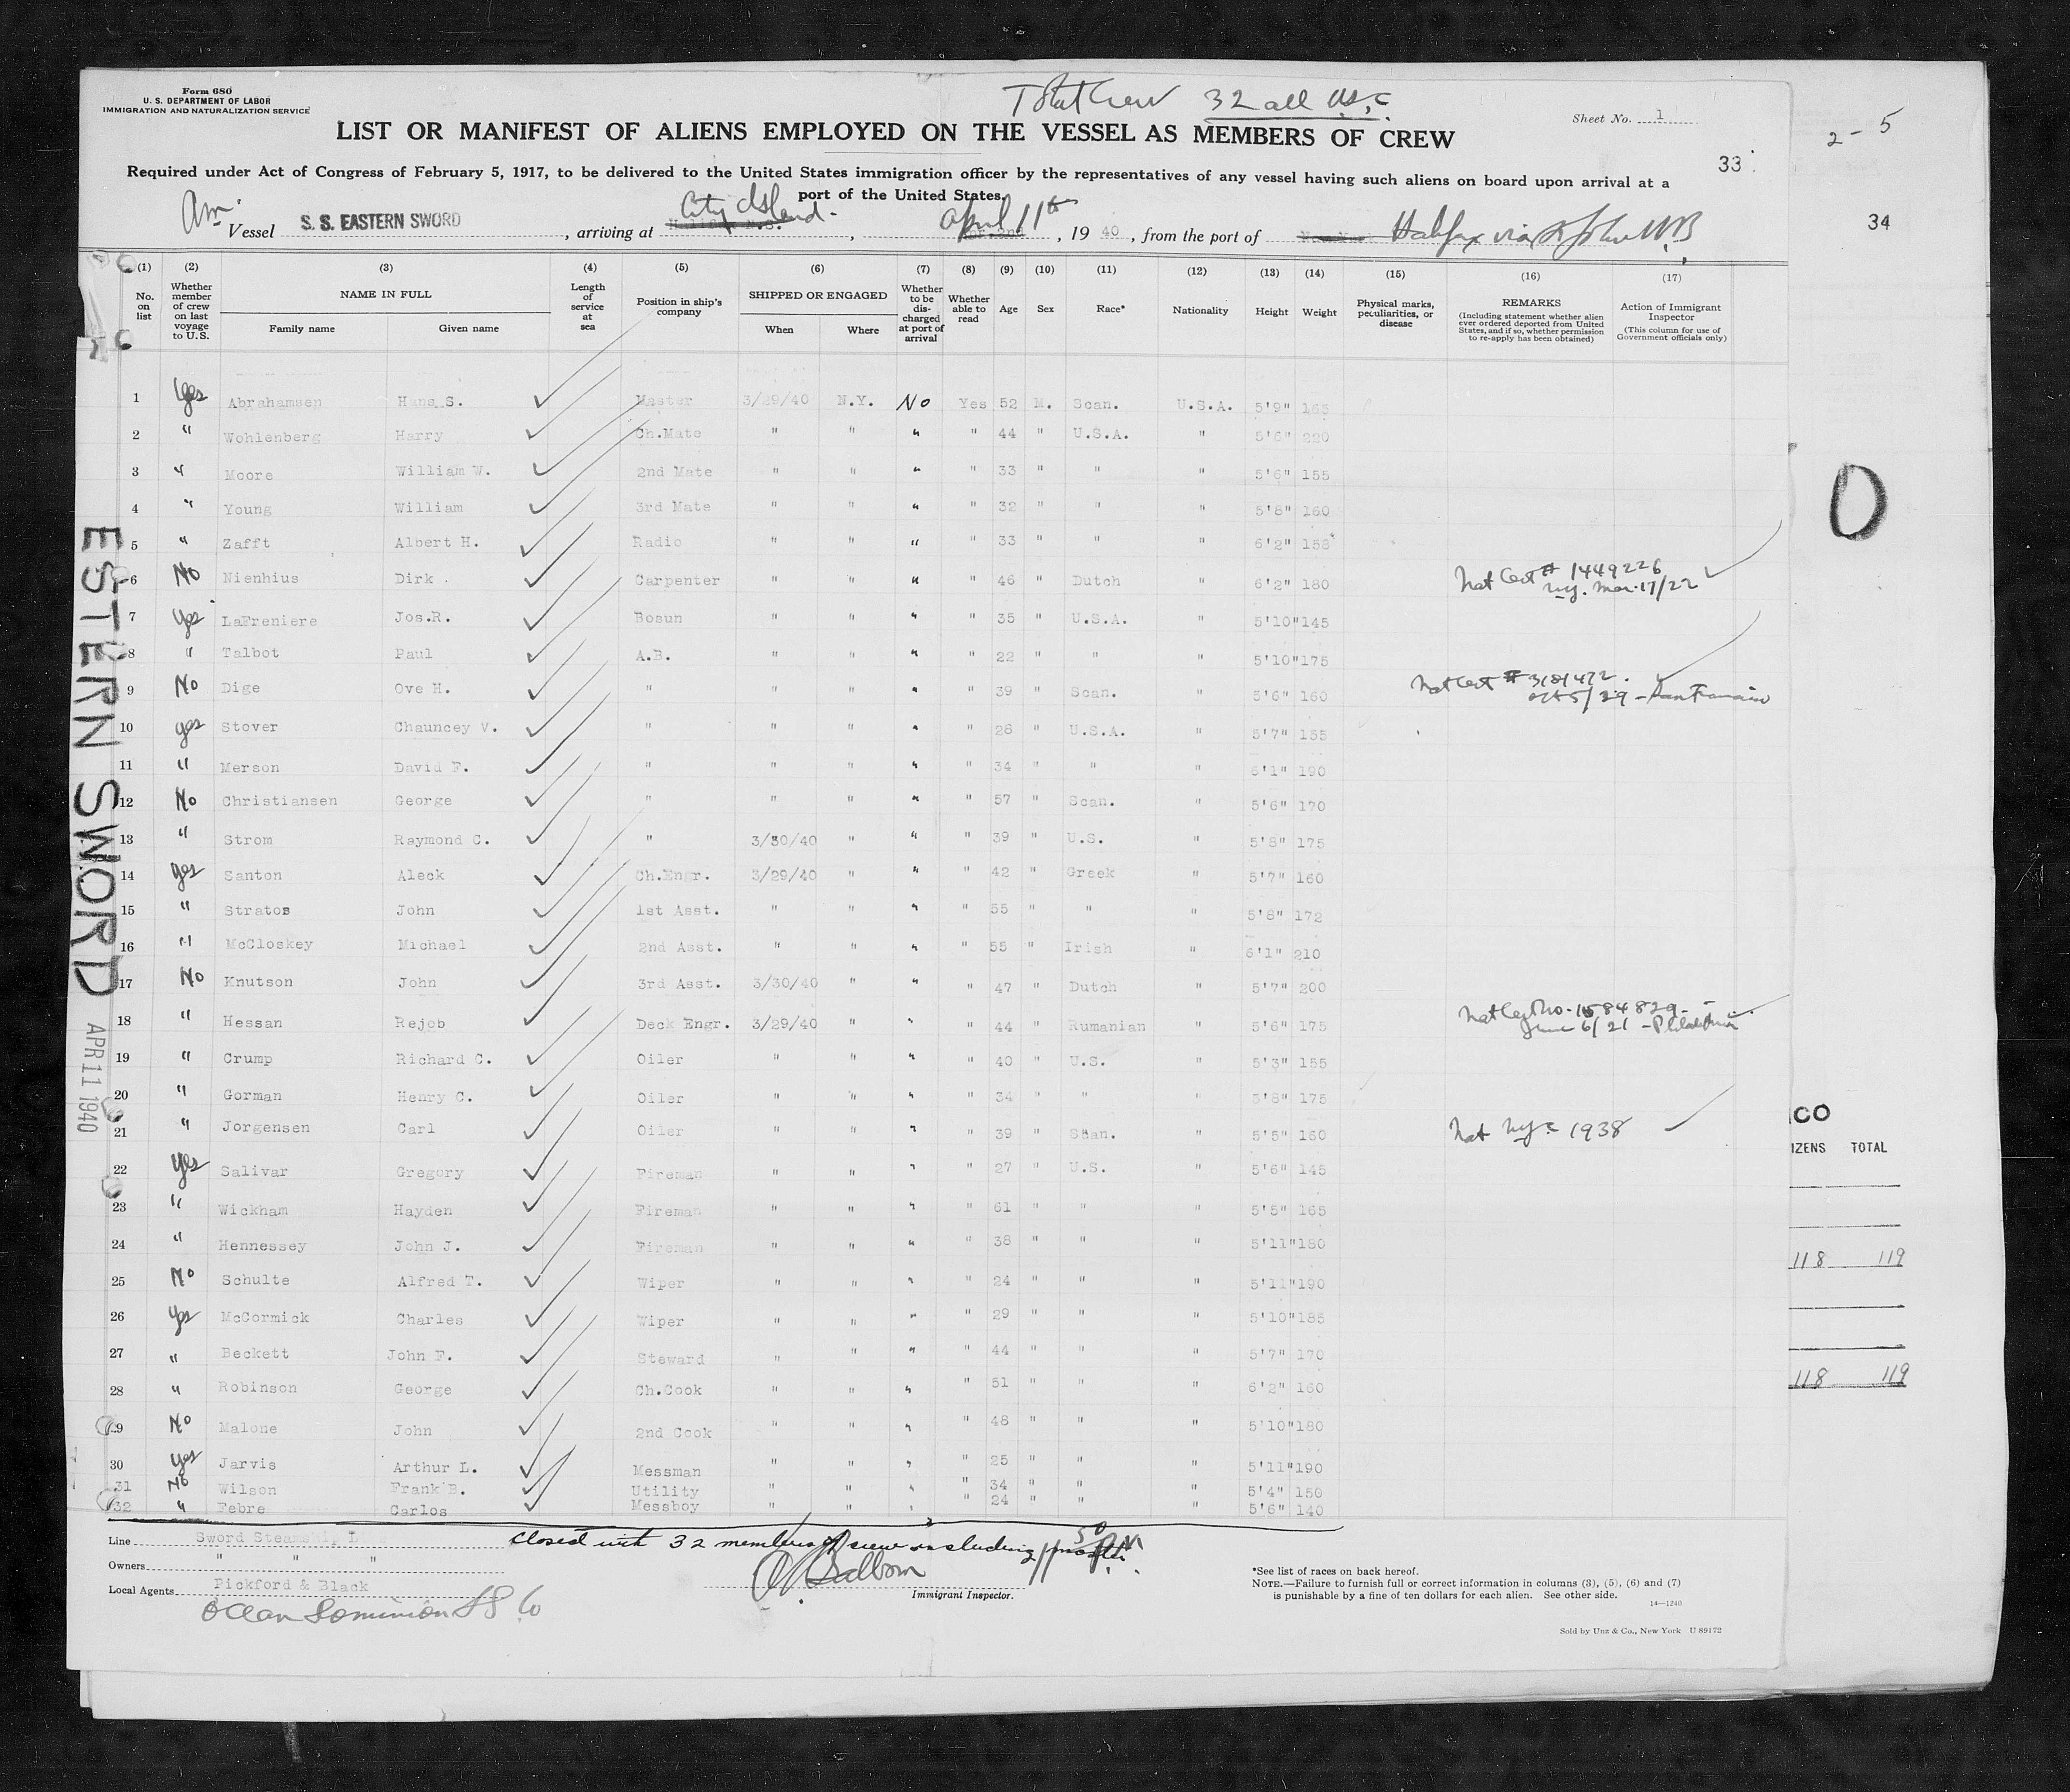 Form 680
U. S. DEPARTMENT OF LABOR
IMMIGRATION AND NATURALIZATION SERVICE
Total Crew 32 all U.S.C.
Sheet No. 1
2 - 5
LIST OR MANIFEST OF ALIENS EMPLOYED ON THE VESSEL AS MEMBERS OF CREW
33
Required under Act of Congress of February 5, 1917, to be delivered to the United States immigration officer by the representatives of any vessel having such aliens on board upon arrival at a
port of the United States.
34
Am. Vessel S. S. EASTERN SWORD, arriving at City Island, April 11th, 19 40, from the port of Halifax via St John N.B.
(1) (2) (3) (4) (5) (6) (7) (8) (9) (10) (11) (12) (13) (14) (15) (16) (17)
No. on list
Whether member of crew on last voyage to U.S.
NAME IN FULL
Family name Given name
Length of service at sea
Position in ship's company
SHIPPED OR ENGAGED
When Where
Whether to be discharged at port of arrival
Whether able to read
Age
Sex
Race*
Nationality
Height
Weight
Physical marks, peculiarities, or disease
REMARKS
(Including statement whether alien ever ordered deported from United States, and if so, whether permission to re-apply has been obtained)
Action of Immigrant Inspector
(This column for use of Government officials only)
1 Yes Abrahamsen Hans S. Master 3/29/40 N.Y. No Yes 52 M. Scan. U.S.A. 5'9" 165
2 " Wohlenberg Harry Ch.Mate " " " " 44 " U.S.A. " 5'6" 220
3 " Moore William W. 2nd Mate " " " " 33 " " " 5'6" 155
4 " Young William 3rd Mate " " " " 32 " " " 5'8" 160
5 " Zafft Albert H. Radio " " " " 33 " " " 6'2" 158
6 No Nienhius Dirk Carpenter " " " " 46 " Dutch " 6'2" 180 Nat Cert # 1449226 N.Y. Mar. 17/22
7 Yes LaFreniere Jos.R. Bosun " " " " 35 " U.S.A. " 5'10" 145
8 " Talbot Paul A.B. " " " " 22 " " " 5'10" 175
9 No Dige Ove H. " " " " " 39 " Scan. " 5'6" 160 Nat Cert # 3181472. Oct 5/29 - San Francisco
10 yes Stover Chauncey V. " " " " " 28 " U.S.A. " 5'7" 155
11 " Merson David F. " " " " " 34 " " " 6'1" 190
12 No Christiansen George " " " " " 57 " Scan. " 5'6" 170
13 " Strom Raymond C. " 3/30/40 " " " 39 " U.S. " 5'8" 175
14 yes Santon Aleck Ch.Engr. 3/29/40 " " " 42 " Greek " 5'7" 160
15 " Stratos John 1st Asst. " " " " 55 " " " 5'8" 172
16 " McCloskey Michael 2nd Asst. " " " " 55 " Irish " 6'1" 210
17 No Knutson John 3rd Asst. 3/30/40 " " " 47 " Dutch " 5'7" 200
18 " Hessan Rejob Deck Engr. 3/29/40 " " " 44 " Rumanian " 5'6" 175 Nat Cert No. 1584829 - June 6/21 - Philadelphia
19 " Crump Richard C. Oiler " " " " 40 " U.S. " 5'3" 155
20 " Gorman Henry C. Oiler " " " " 34 " " " 5'8" 175
21 " Jorgensen Carl Oiler " " " " 39 " Scan. " 5'5" 160 Nat N.Y.C 1938
22 Yes Salivar Gregory Fireman " " " " 27 " U.S. " 5'6" 145
23 " Wickham Hayden Fireman " " " " 61 " " " 5'5" 165
24 " Hennessey John J. Fireman " " " " 38 " " " 5'11" 180
25 No Schulte Alfred T. Wiper " " " " 24 " " " 5'11" 190
26 Yes McCormick Charles Wiper " " " " 29 " " " 5'10" 185
27 " Beckett John F. Steward " " " " 44 " " " 5'7" 170
28 " Robinson George Ch.Cook " " " " 51 " " " 6'2" 160
29 No Malone John 2nd Cook " " " " 48 " " " 5'10" 180
30 Yes Jarvis Arthur L. Messman " " " " 25 " " " 5'11" 190
31 No Wilson Frank B. Utility " " " " 34 " " " 5'4" 150
32 " Febre Carlos Messboy " " " " 24 " " " 5'6" 140
ESTERN SWORD APR 11 1940
ICO
IZENS TOTAL
118 119
118 119
Line Sword Steamship
Closed with 32 members of crew including master
Owners " " "
Local Agents Pickford & Black
Ocean Dominion SS Co
Immigrant Inspector.
*See list of races on back hereof.
NOTE.—Failure to furnish full or correct information in columns (3), (5), (6) and (7)
is punishable by a fine of ten dollars for each alien. See other side.
14—1240
Sold by Unz & Co., New York U 89172